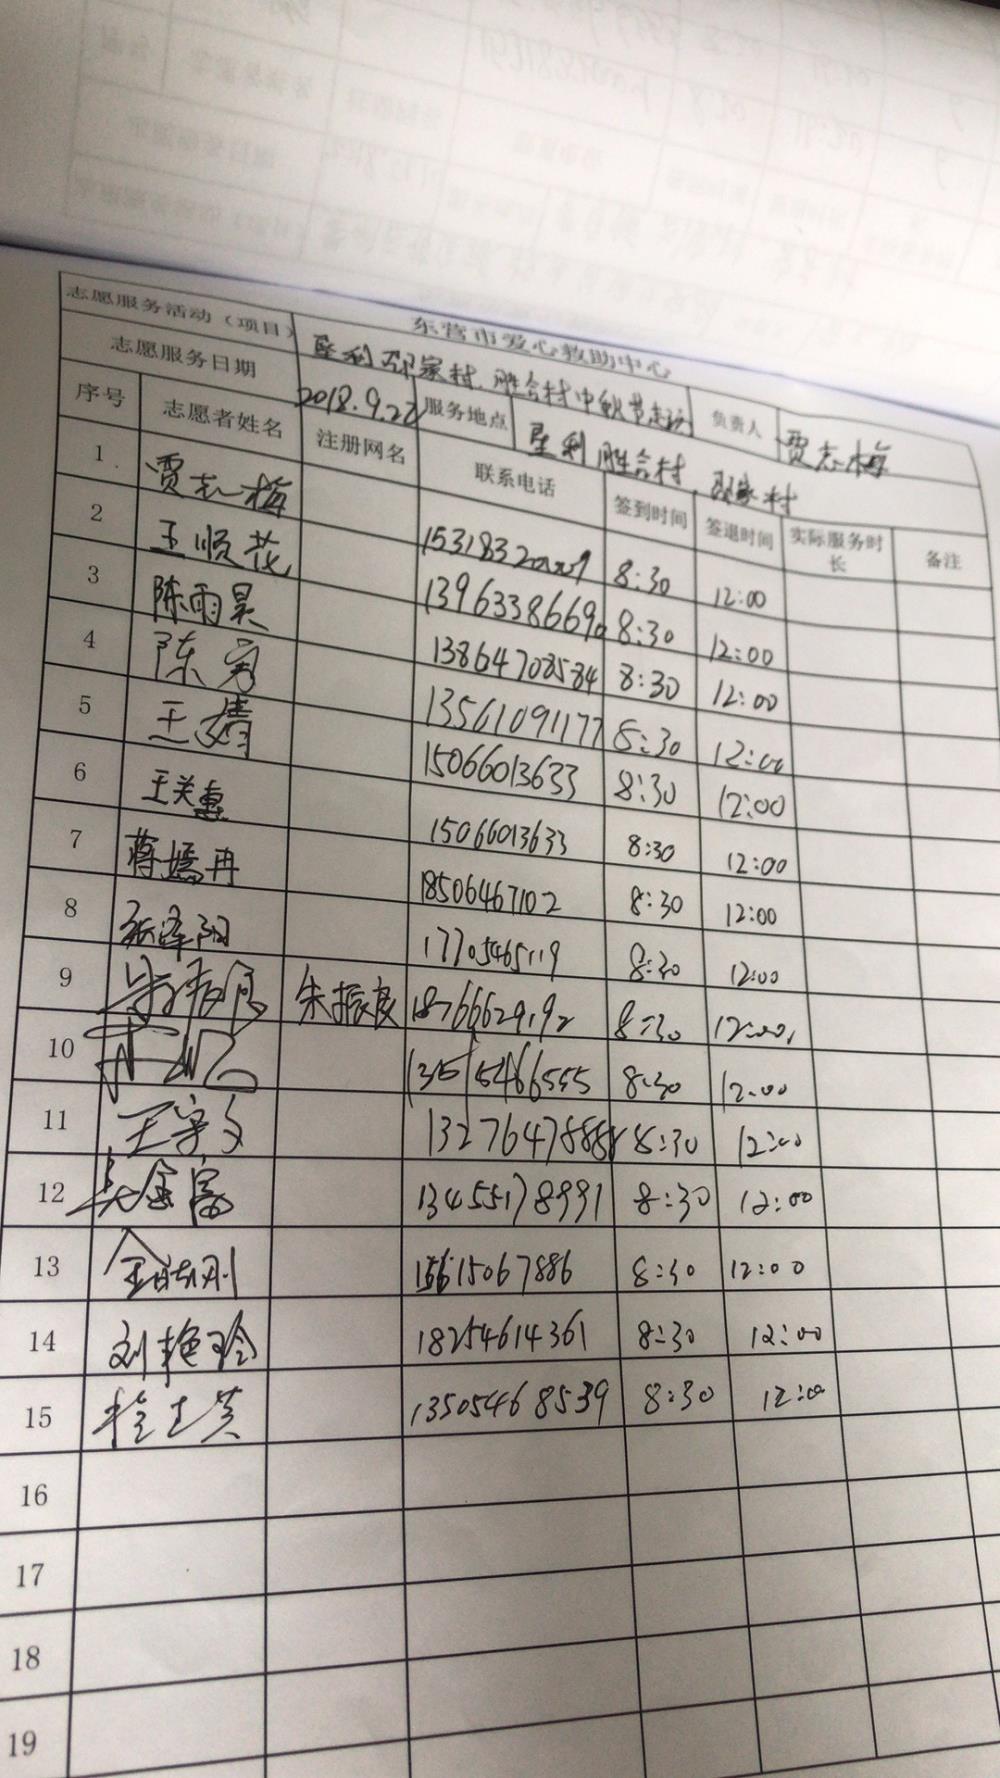 东营市爱心救助中心
志愿服务活动（项目） 垦利邵家村、胜合村中秋节走访 负责人 贾志梅
志愿服务日期 2018.9.22 服务地点 垦利胜合村、邵家村
序号 志愿者姓名 注册网名 联系电话 签到时间 签退时间 实际服务时长 备注
1 贾志梅 8:30 12:00
2 王顺花 13963386690 8:30 12:00
3 陈雨昊 13864708584 8:30 12:00
4 陈 13561091177 8:30 12:00
5 王婧 15066013633 8:30 12:00
6 王关惠 15066013633 8:30 12:00
7 蒋嫣冉 18506467102 8:30 12:00
8 张泽阳 17705465119 8:30 12:00
9 朱振良 朱振良 18766629192 8:30 12:00
10 8:30 12:00
11 王 13276478888 8:30 12:00
12 吴金富 13455178991 8:30 12:00
13 15615067886 8:30 12:00
14 刘艳玲 18254614361 8:30 12:00
15 13505468539 8:30 12:00
16
17
18
19